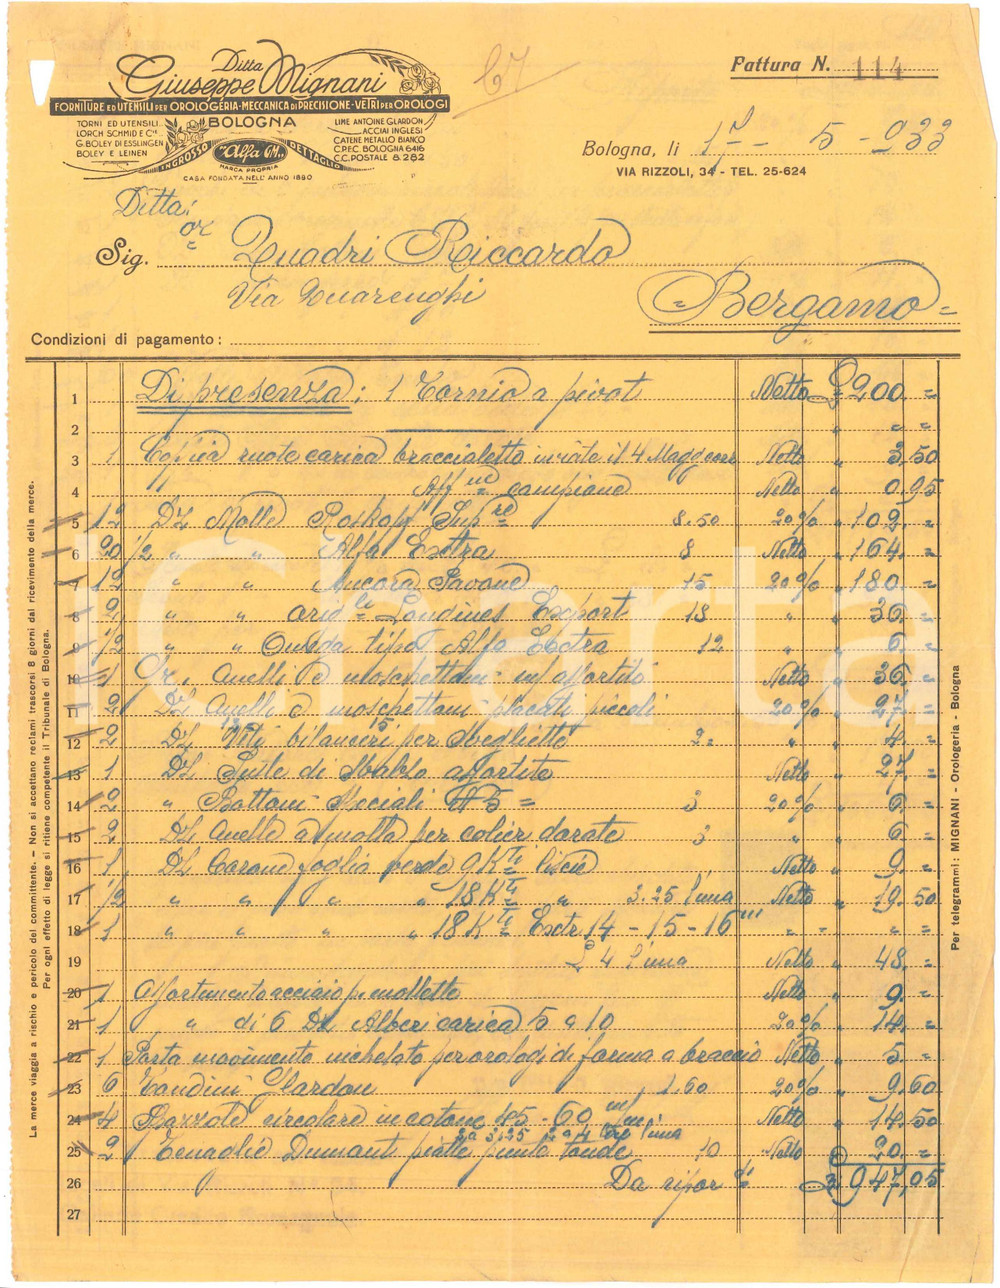 Ditta
Giuseppe Mignani
FORNITURE ED UTENSILI PER OROLOGERIA - MECCANICA DI PRECISIONE - VETRI PER OROLOGI
BOLOGNA
TORNI ED UTENSILI
LORCH SCHMID E C.
G. BOLEY DI ESSLINGEN
BOLEY E LEINEN
LIME ANTOINE GLARDON
ACCIAI INGLESI
CATENE METALLO BIANCO
C.P.E.C. BOLOGNA 6416
C.C. POSTALE 8.282
INGROSSO Alfa G.M. DETTAGLIO
MARCA PROPRIA
CASA FONDATA NELL' ANNO 1890
67
Fattura N. 114
Bologna, li 17 - 5 - 933
VIA RIZZOLI, 34 - TEL. 25-624
Ditta:
Sig. Quadri Riccardo
Via Quarenghi
= Bergamo =
Condizioni di pagamento:
1 Di presenza: 1 Tornio a pivot Netto 200 =
2 " = =
3 1 Copia ruote carica braccialetto inviate il 4 Magg corr Netto " 3.50
4 " campione Netto " 0.95
5 12 Dz Molle Roskopf Supre 8.50 20% " 102. =
6 20 1/2 " " Alfa Extra 8 Netto " 164. =
7 12 " " Ancora Pavone 15 20% " 180. =
8 2 " " Londines Export 18 " " 36. =
9 1/2 " " tipo Alfa Extra 12 " " 6. =
10 1 Gr. Anelli e moschettoni in assortito Netto " 36. =
11 2 Dz Anelli e moschettoni placati piccoli 20% " 27. =
12 2 Dz Viti bilancieri per svegliette 2 = " " 4. =
13 1 Dz di assortite Netto " 27 =
14 2 " Bottoni N 5 = 3 20% " 6 =
15 2 Dz Anelle a molla per colier dorate 3 " " 6 =
16 1 Dz Corone foglia verde 9 Kti liscie Netto " 9. =
17 1/2 " " " " 18 Kti " 3.25 l'una Netto " 19.50
18 1 " " " " 18 Kti Extr 14 - 15 - 16''' " - " =
19 £ 4 l'una Netto " 48. =
20 1 Assortimento acciaio per mollette Netto " 9. =
21 1 " di 6 Dz Alberi carica 5 a 10 20% " 14. =
22 1 Porta movimento nichelato per orologi di forma a braccio Netto " 5. =
23 6 Glardon 1.60 20% " 9.60
24 4 circolare in cotone 45 - 60 m/m Netto " 14.50
2 a 3.25 2 a 4 l'una
25 2 Tenaglie Dumant piatte punte tonde 10 Netto 20. =
26 Da ripor. £ 947,05
27
La merce viaggia a rischio e pericolo del committente. - Non si accettano reclami trascorsi 8 giorni dal ricevimento della merce.
Per ogni effetto di legge si ritiene competente il Tribunale di Bologna.
Per telegrammi: MIGNANI - Orologeria - Bologna
Charta